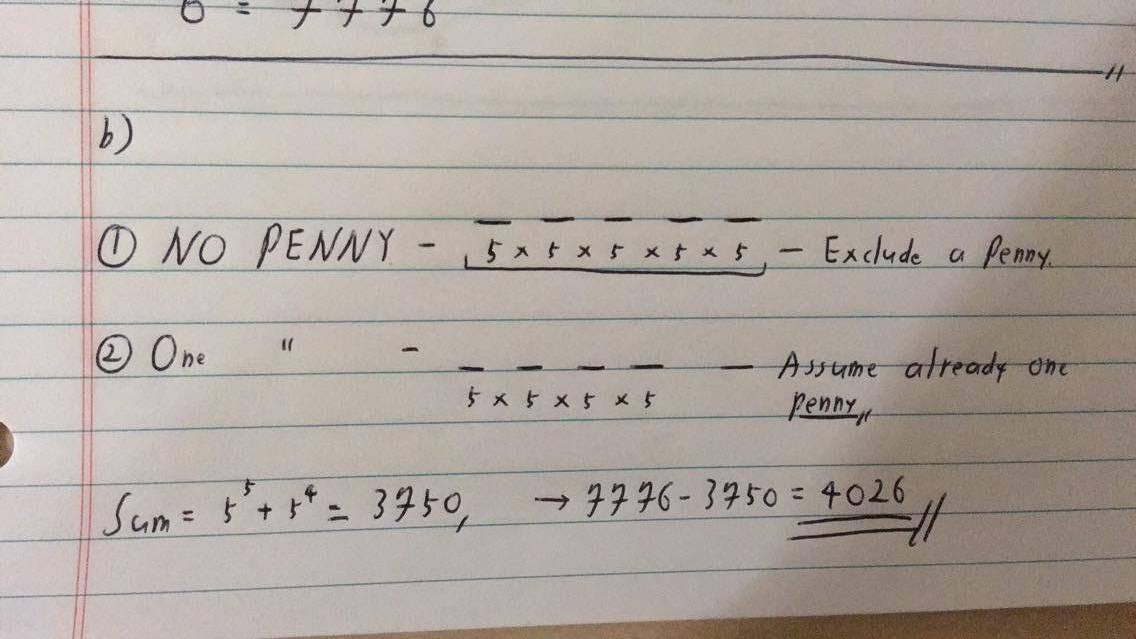 6 = 7776
b)
① NO PENNY - 5 × 5 × 5 × 5 × 5 - Exclude a Penny.
② One " - 5 × 5 × 5 × 5 - Assume already one
penny,,
Sum = 5⁵ + 5⁴ = 3750, → 7776 - 3750 = 4026 //